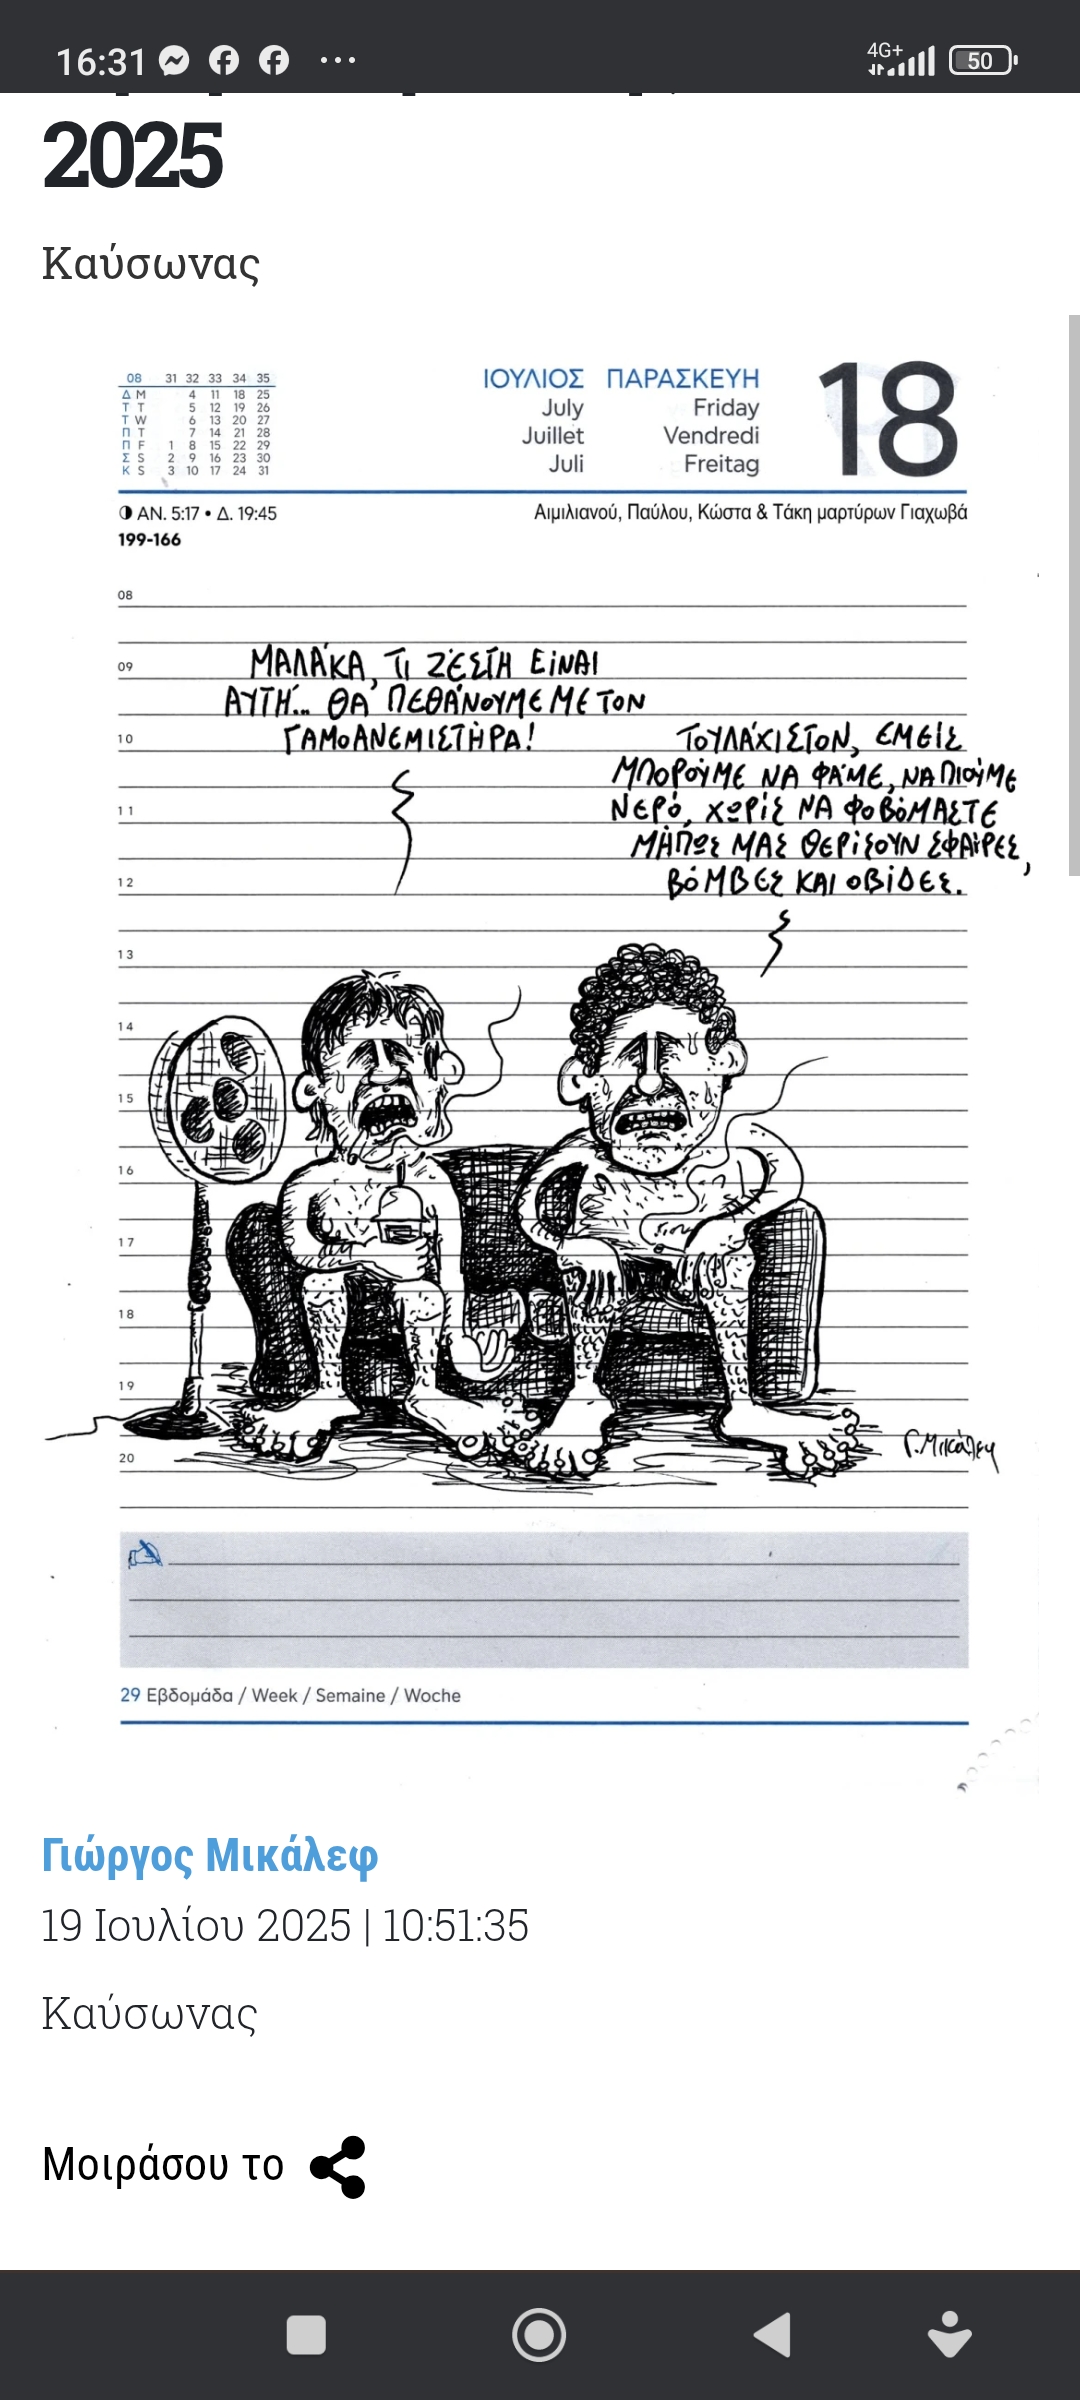 16:31
4G+
50
2025
Καύσωνας
08 31 32 33 34 35
Δ M 4 11 18 25
Τ T 5 12 19 26
Τ W 6 13 20 27
Π T 7 14 21 28
Π F 1 8 15 22 29
Σ S 2 9 16 23 30
Κ S 3 10 17 24 31
ΙΟΥΛΙΟΣ ΠΑΡΑΣΚΕΥΗ
July Friday
Juillet Vendredi
Juli Freitag
18
ΑΝ. 5:17 • Δ. 19:45
Αιμιλιανού, Παύλου, Κώστα & Τάκη μαρτύρων Γιαχωβά
199-166
08
09
ΜΑΛΆΚΑ, ΤΙ ΖΈΣΤΗ ΕΊΝΑΙ
ΑΥΤΉ... ΘΑ ΠΕΘΆΝΟΥΜΕ ΜΕ ΤΟΝ
ΓΑΜΟΑΝΕΜΙΣΤΉΡΑ!
10
ΤΟΥΛΆΧΙΣΤΟΝ, ΕΜΕΊΣ
ΜΠΟΡΟΎΜΕ ΝΑ ΦΆΜΕ, ΝΑ ΠΙΟΎΜΕ
ΝΕΡΌ, ΧΩΡΊΣ ΝΑ ΦΟΒΌΜΑΣΤΕ
ΜΉΠΩΣ ΜΑΣ ΘΕΡΊΣΟΥΝ ΣΦΑΊΡΕΣ,
ΒΌΜΒΕΣ ΚΑΙ ΟΒΊΔΕΣ.
11
12
13
14
15
16
17
18
19
20
Γ. Μικάλεφ
29 Εβδομάδα / Week / Semaine / Woche
Γιώργος Μικάλεφ
19 Ιουλίου 2025 | 10:51:35
Καύσωνας
Μοιράσου το